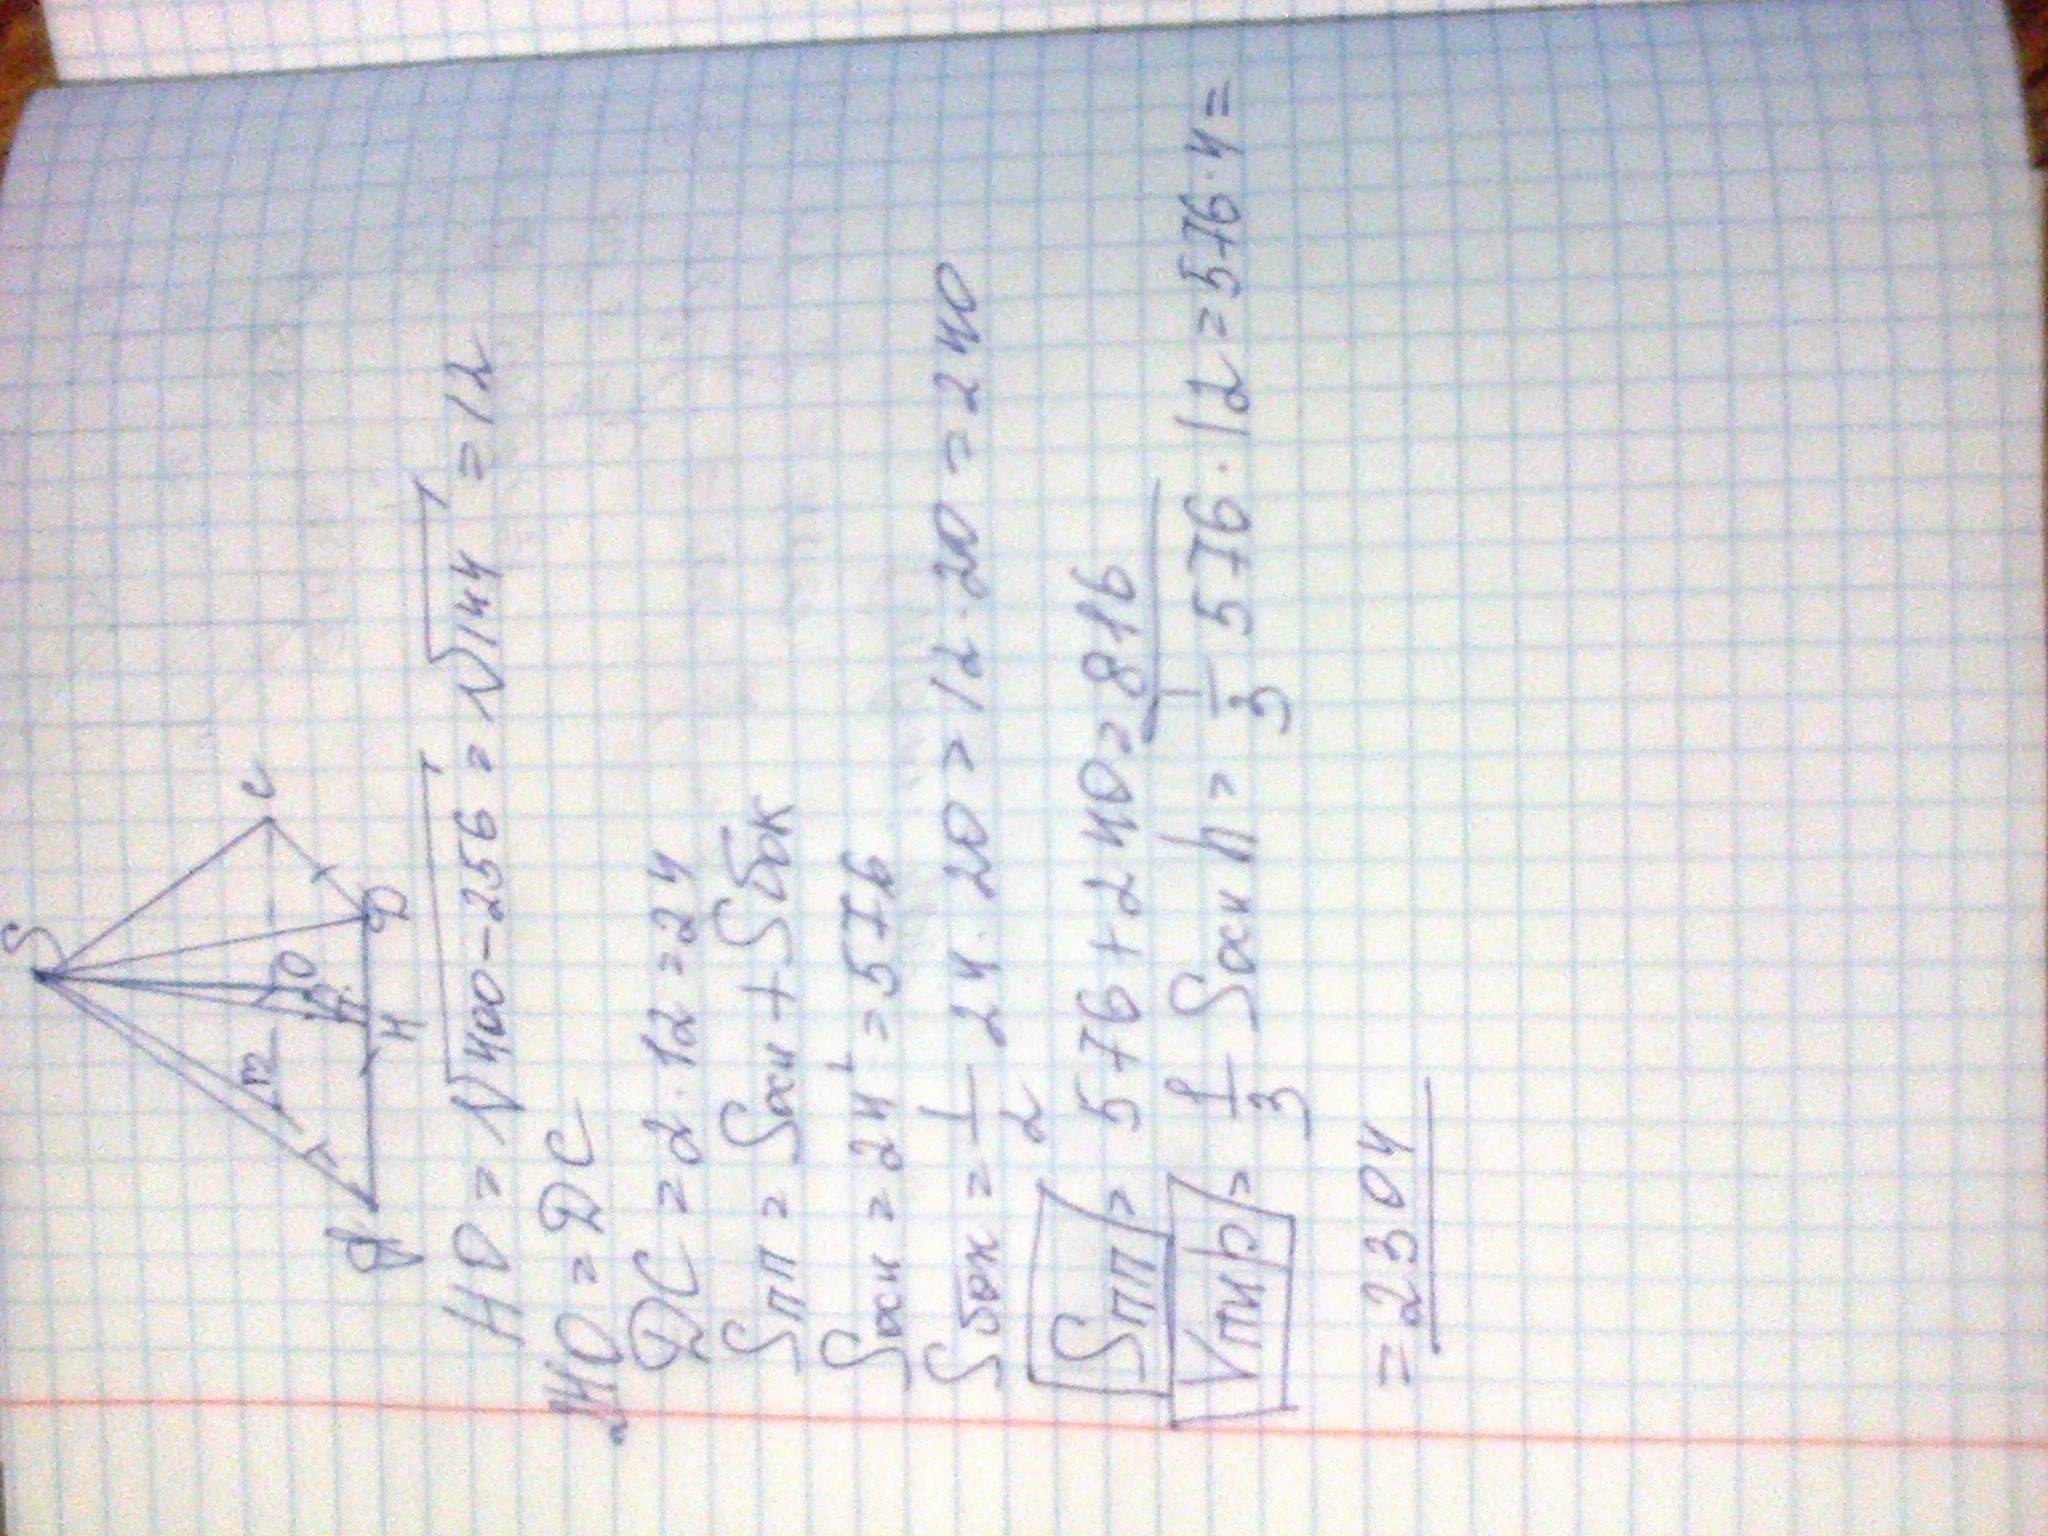 S
B
C
O
A
H
D
HO = √400-256 = √144 = 12
2HO = DC
DC = 2 · 12 = 24
Sпп = Sосн + Sбок
Sосн = 24² = 576
Sбок = 1/2 24 · 20 = 12 · 20 = 240
Sпп = 576 + 240 = 816
Vпир = 1/3 Sосн h = 1/3 576 · 12 = 576 · 4 =
= 2304